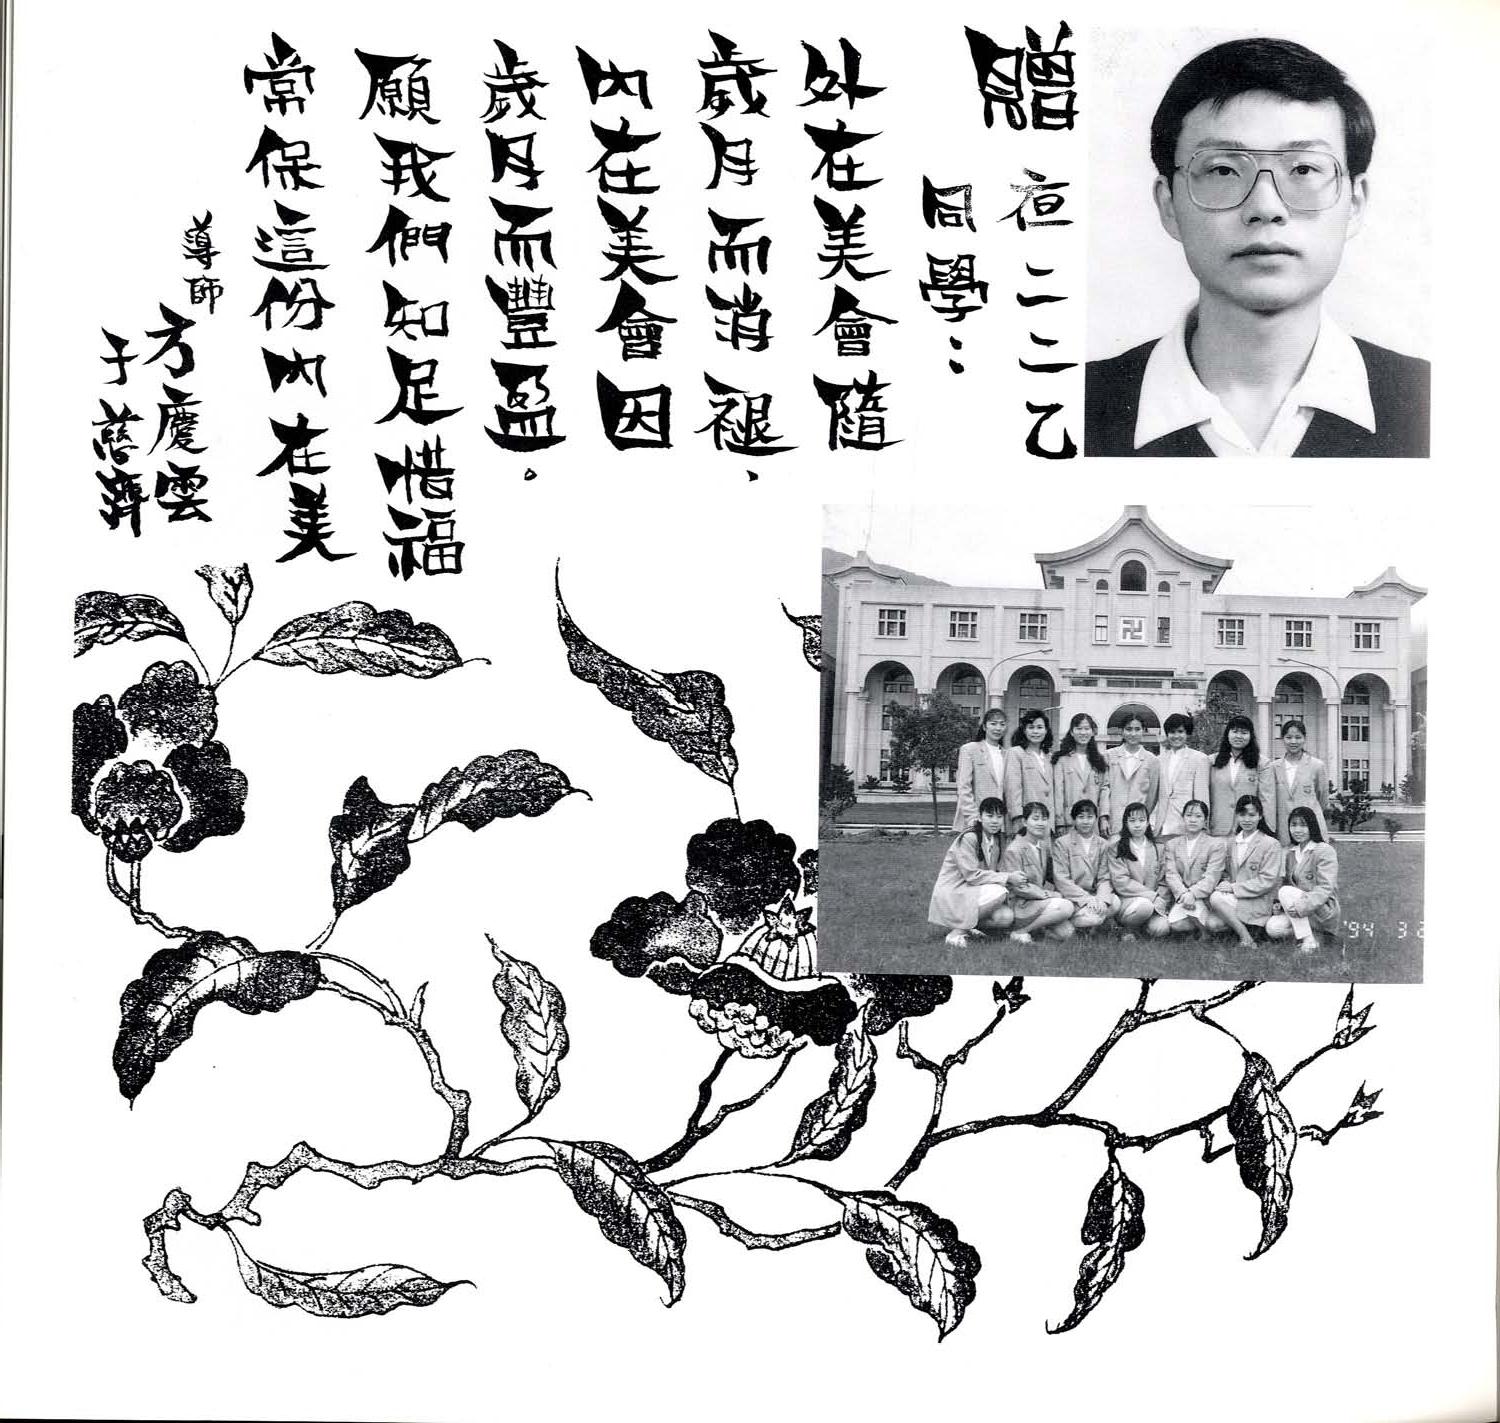 贈 夜二二乙
同學：
外在美會隨
歲月而消褪、
內在美會因
歲月而豐盈。
願我們知足惜福
常保這份內在美
導師 方慶雲
于慈濟
卍
'94 3 2